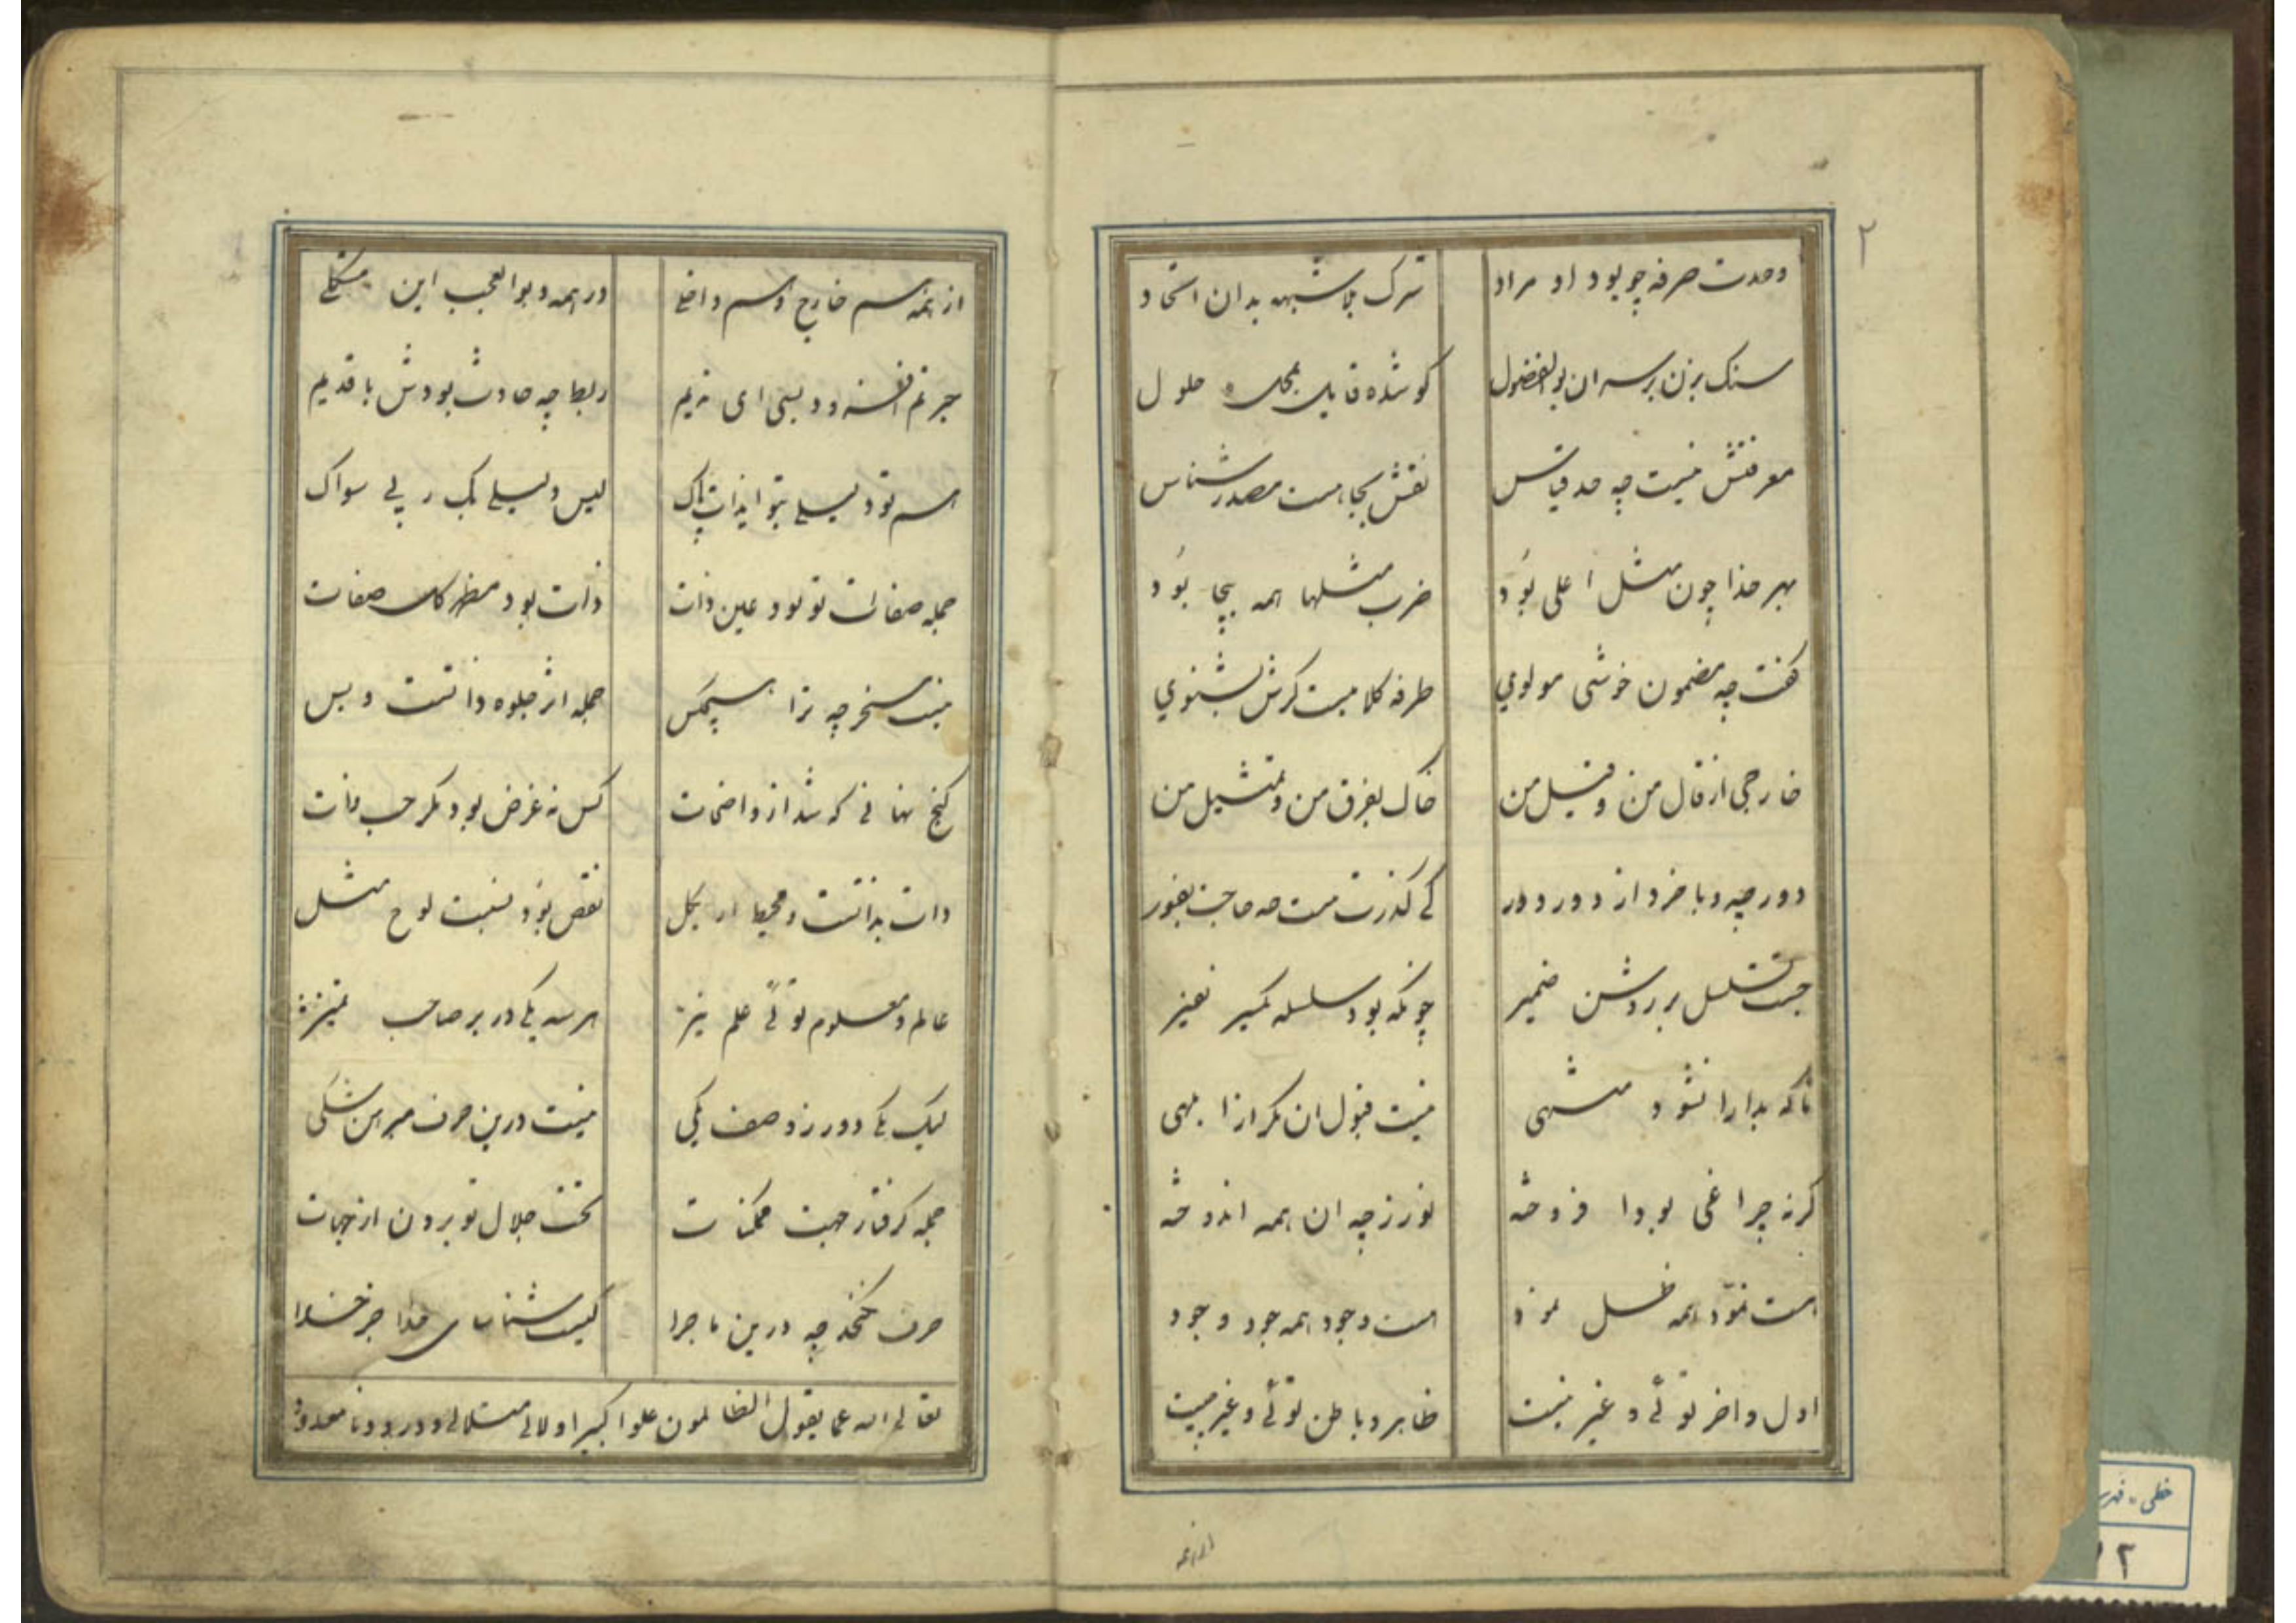 ۲
وحدت صرفه چو بود او مراد شرک بلا شبهه بدان اتحاد
سنک بزن بر سر ان بوالفضول کو شده قایل بمحل حلول
معرفتش نیست چه حد قیاس نقش بیجا هست مصدر شناس
بهر خدا چون مثل اعلی بود ضرب مثلها همه بیجا بود
گفت چه مضمون خوشی مولوی طرفه کلامیست کرش بشنوی
خارجی از قال من و قیل من خاک بفرق من و تمثیل من
دور چه و با خرد از دور دور کی گذرت
جست تسلسل بر روشن ضمیر چونکه بود سلسله
تا که بدارا نشود منتهی نیست قبول ان مکر از ابلهی
کرنه چراغی بود افروخته نور زچه ان همه اندوخته
هست نمود همه ظل نمود هست وجود همه جود وجود
اول و اخر توئی و غیر نیست ظاهر و باطن توئی و غیر نیست
از همه
از همه هم خارج و هم داخلی در همه و بوالعجب این مشکلی
ربط چه حادث بودش با قدیم
هم تو دلیلی بتو ایذات پاک لیس دلیلی بک ربی سواک
جمله صفات تو بود عین ذات ذات بود مظهر کل صفات
نیست مسخر چه ترا هیچکس جمله اثر جلوه ذاتست و بس
کنج نهانی که شد از واضحات کس نه غرض بود مکر حب ذات
ذات بذاتست و محیط او بکل نقص بود نسبت لوح مثل
عالم و معلوم توئی علم نیز هر سه یکی در بر صاحب تمیز
لیک یکی دور ز وصف یکی نیست درین حرف مبرهن شکی
جمله کرفتار جهت ممکنات تخت جلال تو برون از جهات
حرف چه درین ماجرا کیست شناسای خدا جز خدا
تعالی الله عما یقول الظالمون علوا کبیرا
خطی - فهر
۱۲